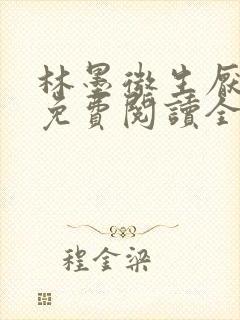 林墨徵生厭
免費閱讀全
程金梁